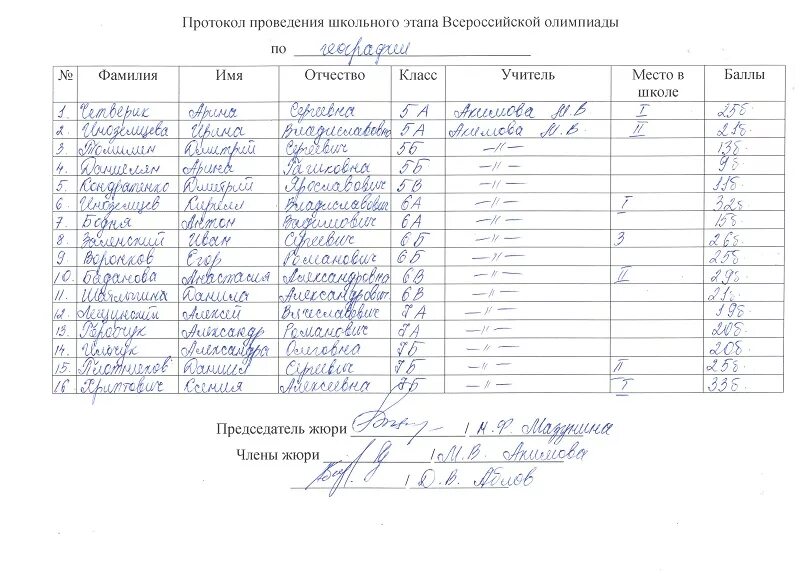 Протокол проведения школьного этапа Всероссийской олимпиады
по географии
№ Фамилия Имя Отчество Класс Учитель Место в школе Баллы
1. Четверик Арина Сергеевна 5А Акимова М.В I 25б.
2. Иноземцева Ирина Владиславовна 5А Акимова М.В. II 21б.
3. Томилин Дмитрий Сергеевич 5Б —"— 13б.
4. Даниелян Арина Гагиковна 5Б —"— 9б.
5. Кондратенко Дмитрий Ярославович 5В —"— 11б.
6. Иноземцев Кирилл Владиславович 6А —"— I 32б.
7. Бодня Антон Вадимович 6А —"— 15б.
8. Зеленский Иван Сергеевич 6Б —"— 3 26б.
9. Воронков Егор Романович 6Б —"— 25б.
10. Баданова Анастасия Александровна 6В —"— II 29б.
11. Данила Александрович 6В —"— 21б.
12. Лещинский Алексей Вячеславович 7А —"— 19б.
13. Александр Романович 7А —"— 20б.
14. Ильчук Александра Олеговна 7Б —"— 20б.
15. Плотников Даниил Сергеевич 7Б —"— II 25б.
16 Хриптович Ксения Алексеевна 7Б —"— I 33б.
Председатель жюри / Н.Ф. Мазунина
Члены жюри / М.В. Акимова
/ Д.В. Аблов